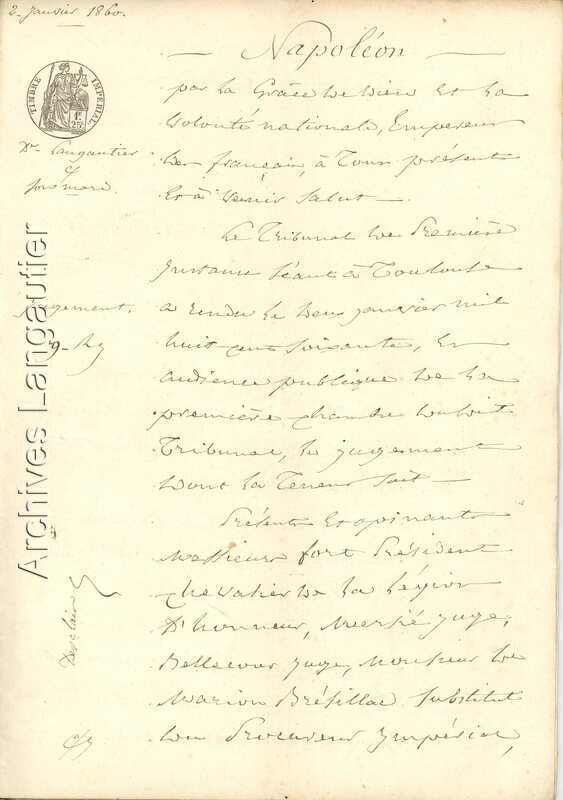 2 Janvier 1860.
Napoléon
par la Grâce de Dieu et la
Volonté nationale, Empereur
des français, à Tous présents
et à Venir Salut.
Le Tribunal de Première
Instance Séant à Toulouse
a rendu le deux janvier mil
huit cent soixante, en
audience publique de la
première chambre dudit
Tribunal, le jugement
dont la Teneur suit
Présents et opinants
Messieurs fort Président
chevalier de la Légion
D'honneur, juge,
Bellecour juge, Monsieur de
Marion Brésillac Substitut
du Procureur Impérial,
TIMBRE IMPERIAL
1F
25C
De Langautier
C/
son mari.
jugement.
Archives Langautier